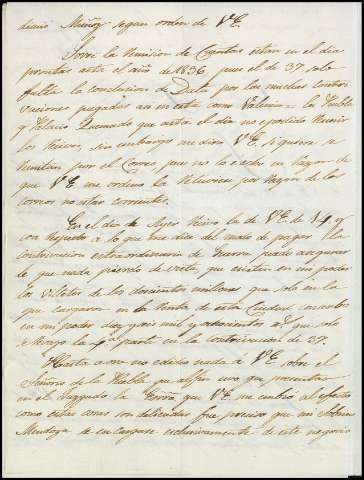 diario Muñoz segun orden de VE.
Sobre la Remision de Cuentas estan en el dia
prontas asta el año de 1836, pues el de 37 solo
falta la conclusion de Data por las muchas contri
vuciones pagadas asi en esta como Valencia = la Puebla
y Palacio Quemado que asta el dia no e podido Reunir
los Recivos, sin embargo me dira VE. si quiere se
Remitan por el Correo pues no lo e echo en Razon de
que VE me ordeno la Retencion por Razon de los
correos no estar corrientes.
En el dia de Ayer Recivi la de VE de 14 y
con Respecto a lo que me dice del modo de pagar la
contribucion extraordinaria de Guerra puedo asegurar
de que nada pierdo de vista, que existen en mi poder
los villetes de los doscientos millones que solo en lo
que cargaron en la Renta de esta Ciudad
en mi poder diez y seis mil y ochocientos rs. que solo
la 4ª parte en la contribucion de 37.
Hasta aora no e dicho nada a VE sobre el
Señorio de la Puebla que al fin uvo que presentar
en el Juzgado la que VE me entrego al efecto
como estas cosas son delicadas fue preciso que mi Sobrino
Mendoza se encargase esclusivamente de este negocio